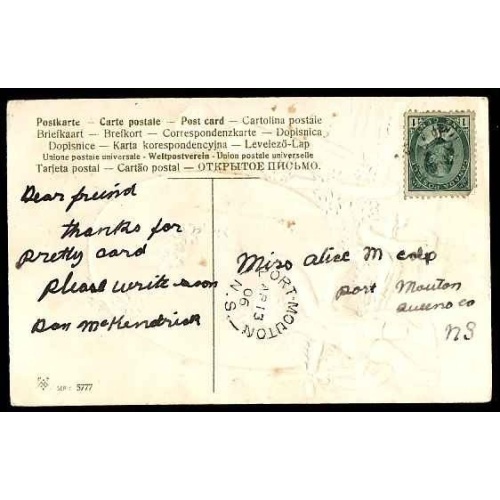 Postkarte – Carte postale – Post card – Cartolina postale
Briefkaart – Brefkort – Correspondenzkarte – Dopisnica
Dopisnice – Karta korespondencyjna – Levelező-Lap
Unione postale universale – Weltpostverein – Union postale universelle
Tarjeta postal – Cartão postal – ОТКРЫТОЕ ПИСЬМО.
1 1
Dear freind
thanks for
pretty card
Please write soon
Dan McKendrick
Miss Alice M colp
port Mouton
queens co
NS
PORT-MOUTON
AP 13
06
N.S.
SER: 5777